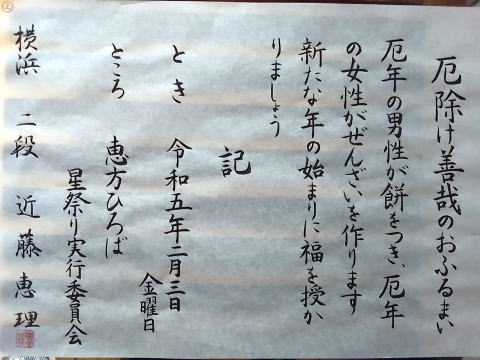 厄除け善哉のおふるまい
厄年の男性が餅をつき、厄年
の女性がぜんざいを作ります
新たな年の始まりに福を授か
りましょう
記
とき 令和五年二月三日
金曜日
ところ 恵方ひろば
星祭り実行委員会
横浜 二段 近藤恵理
②